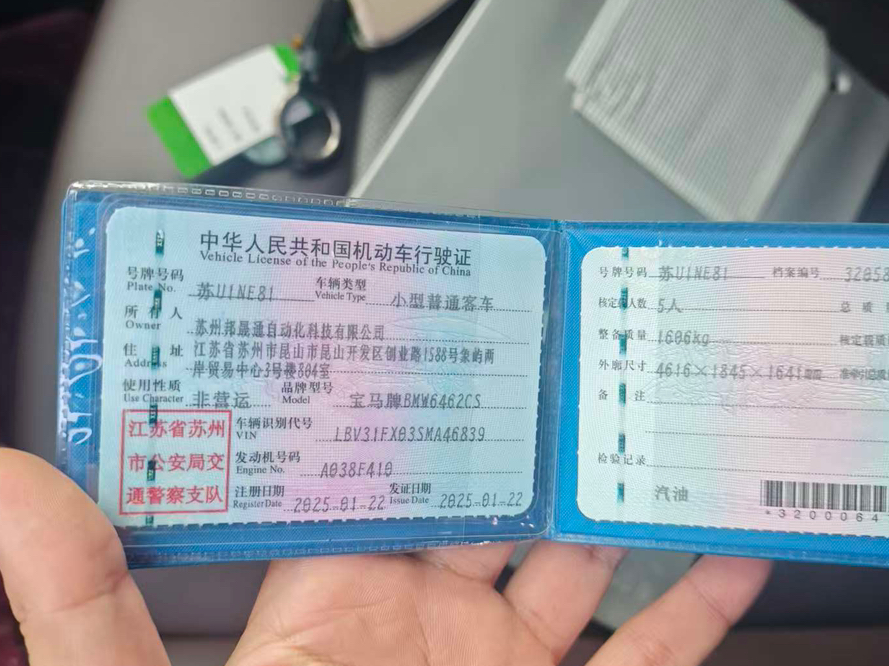 中华人民共和国机动车行驶证
Vehicle License of the People's Republic of China
号牌号码 苏U1NE81 车辆类型 小型普通客车
Plate No. Vehicle Type
所有人 苏州邦晟通自动化科技有限公司
Owner
住址 江苏省苏州市昆山市昆山开发区创业路1588号象屿两
Address 岸贸易中心3号楼804室
使用性质 非营运 品牌型号 宝马牌BMW6462CS
Use Character Model
江苏省苏州
市公安局交
通警察支队
车辆识别代号 LBV31FX03SMA46839
VIN
发动机号码 A038F410
Engine No.
注册日期 2025-01-22 发证日期 2025-01-22
Register Date Issue Date
号牌号码 苏U1NE81 档案编号 32058
核定载人数 5人 总质
整备质量 1606kg 核定载质
外廓尺寸 4616×1845×1641
备注
检验记录
汽油
*3200064